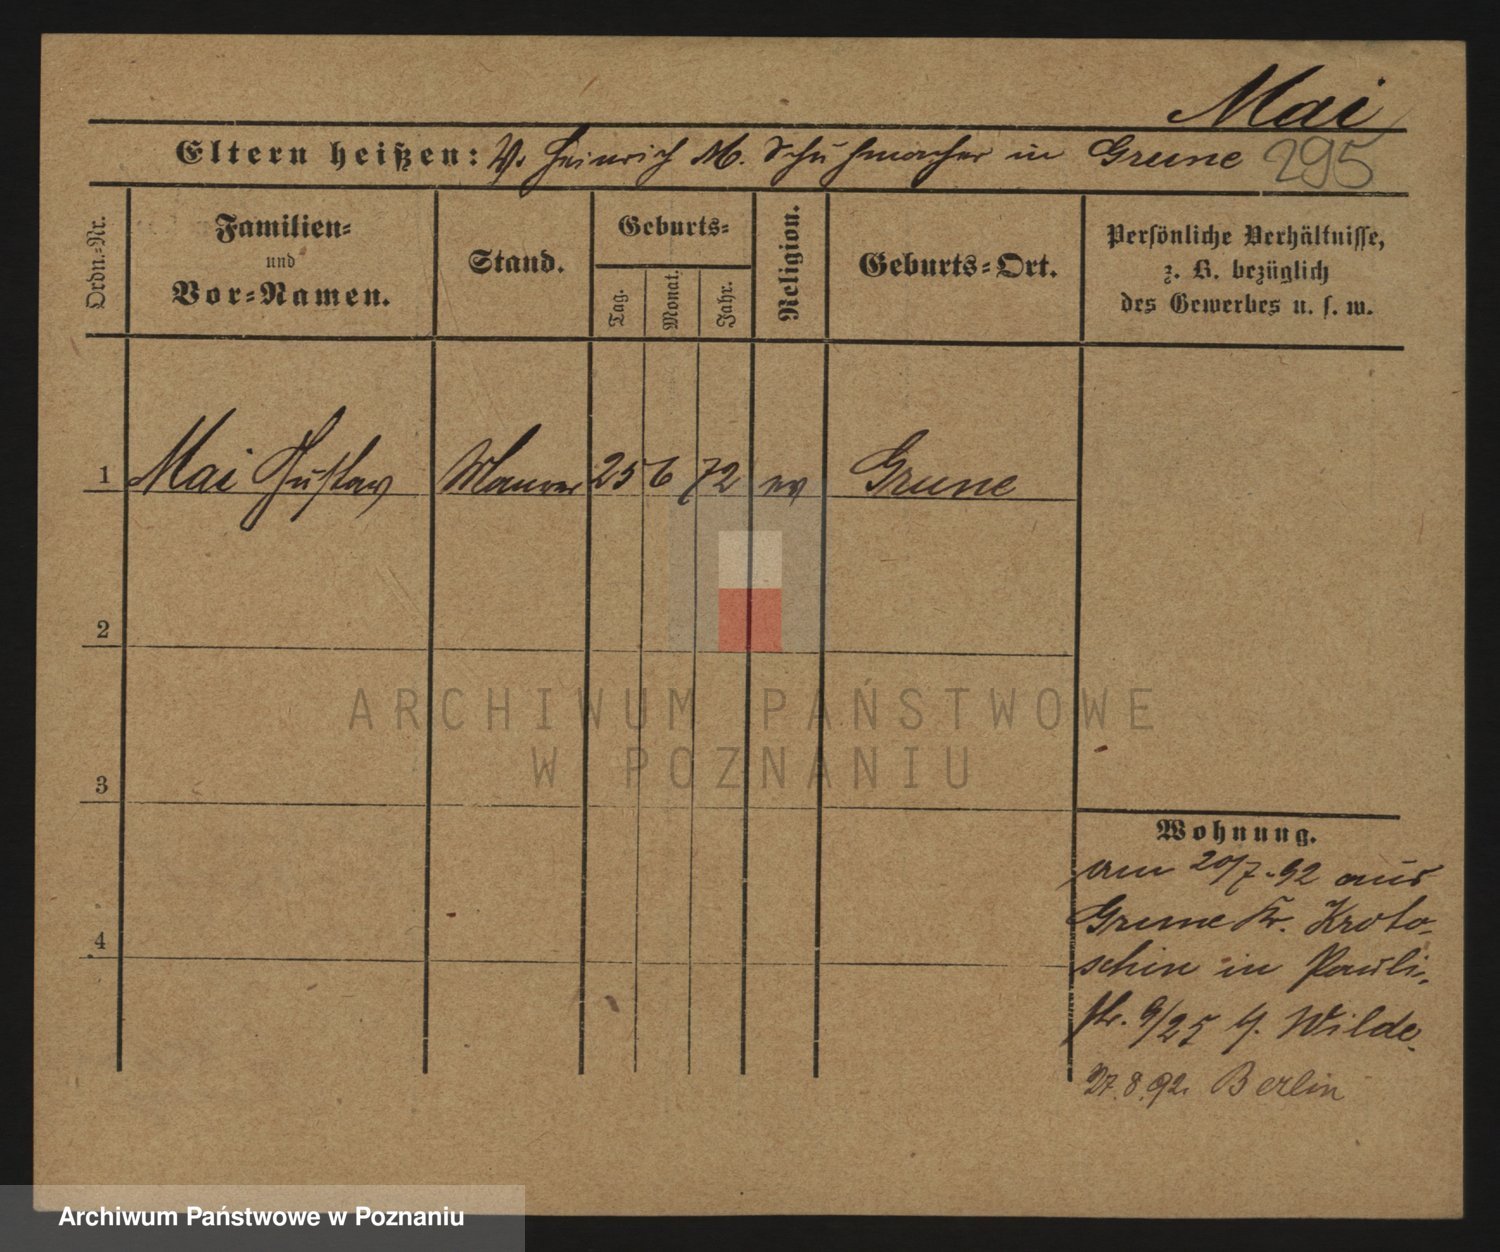 Mai
Eltern heißen: V. Heinrich M. Schuhmacher in Grune 295
Ordn.-Nr.
Familien-
und
Vor-Namen.
Stand.
Geburts-
Tag.
Monat.
Jahr.
Religion.
Geburts-Ort.
Persönliche Verhältnisse,
z. B. bezüglich
des Gewerbes u. s. w.
1 Mai Gustav Maurer 25 6 72 ev Grune
2
3
4
ARCHIWUM PAŃSTWOWE
W POZNANIU
Wohnung.
am 20/7.92 aus
Grune Kr. Kroto-
schin in Pauli-
str. 9/25 b. Wilde.
27.8.92. Berlin
Archiwum Państwowe w Poznaniu